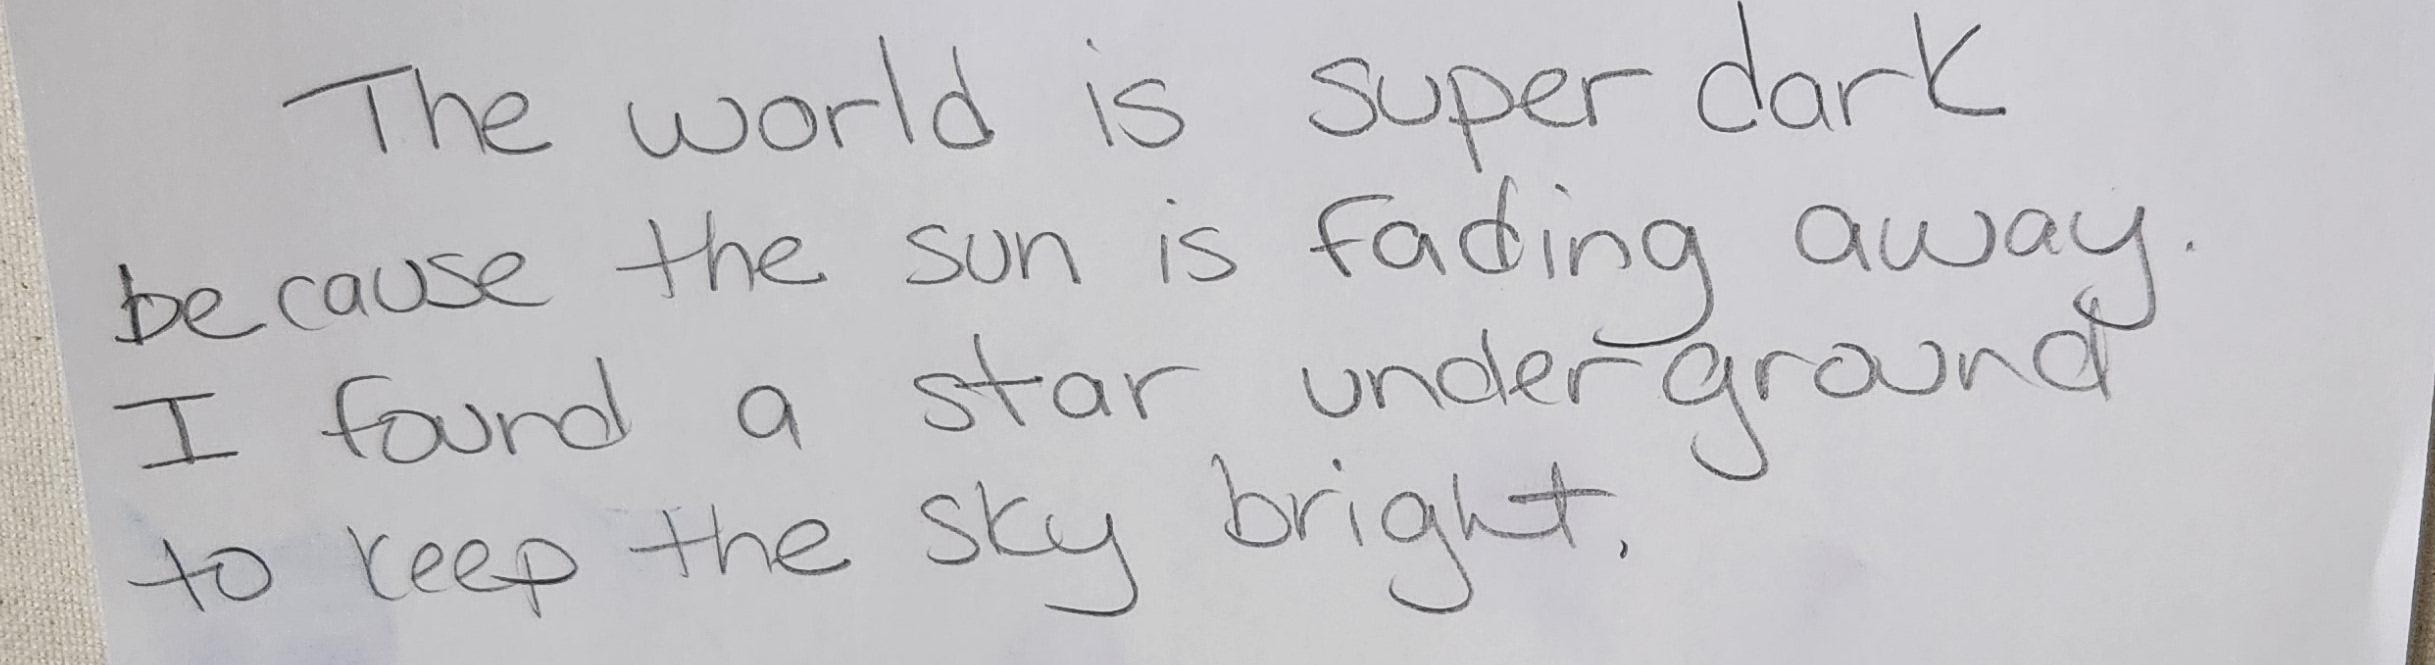 The world is super dark
because the sun is fading away.
I found a star underground
to keep the sky bright.